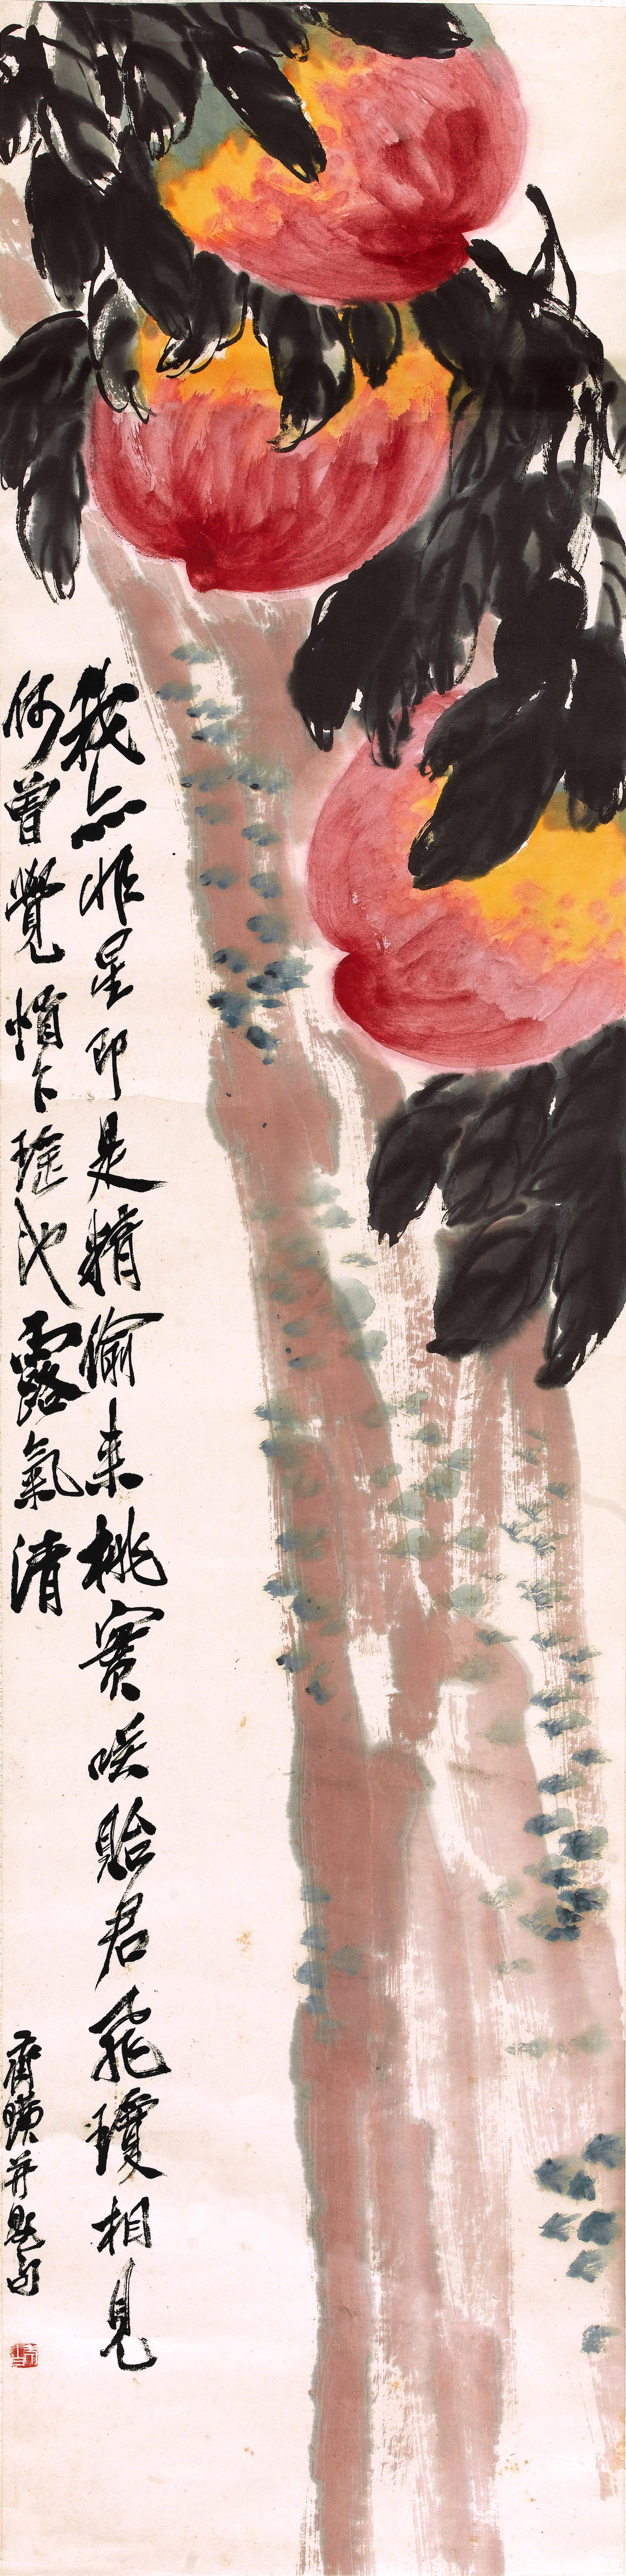 我亦非星即是精偷来桃實咲貽君飛瓊相見
何曾覺悄下瑤池露氣清
齊璜并題句